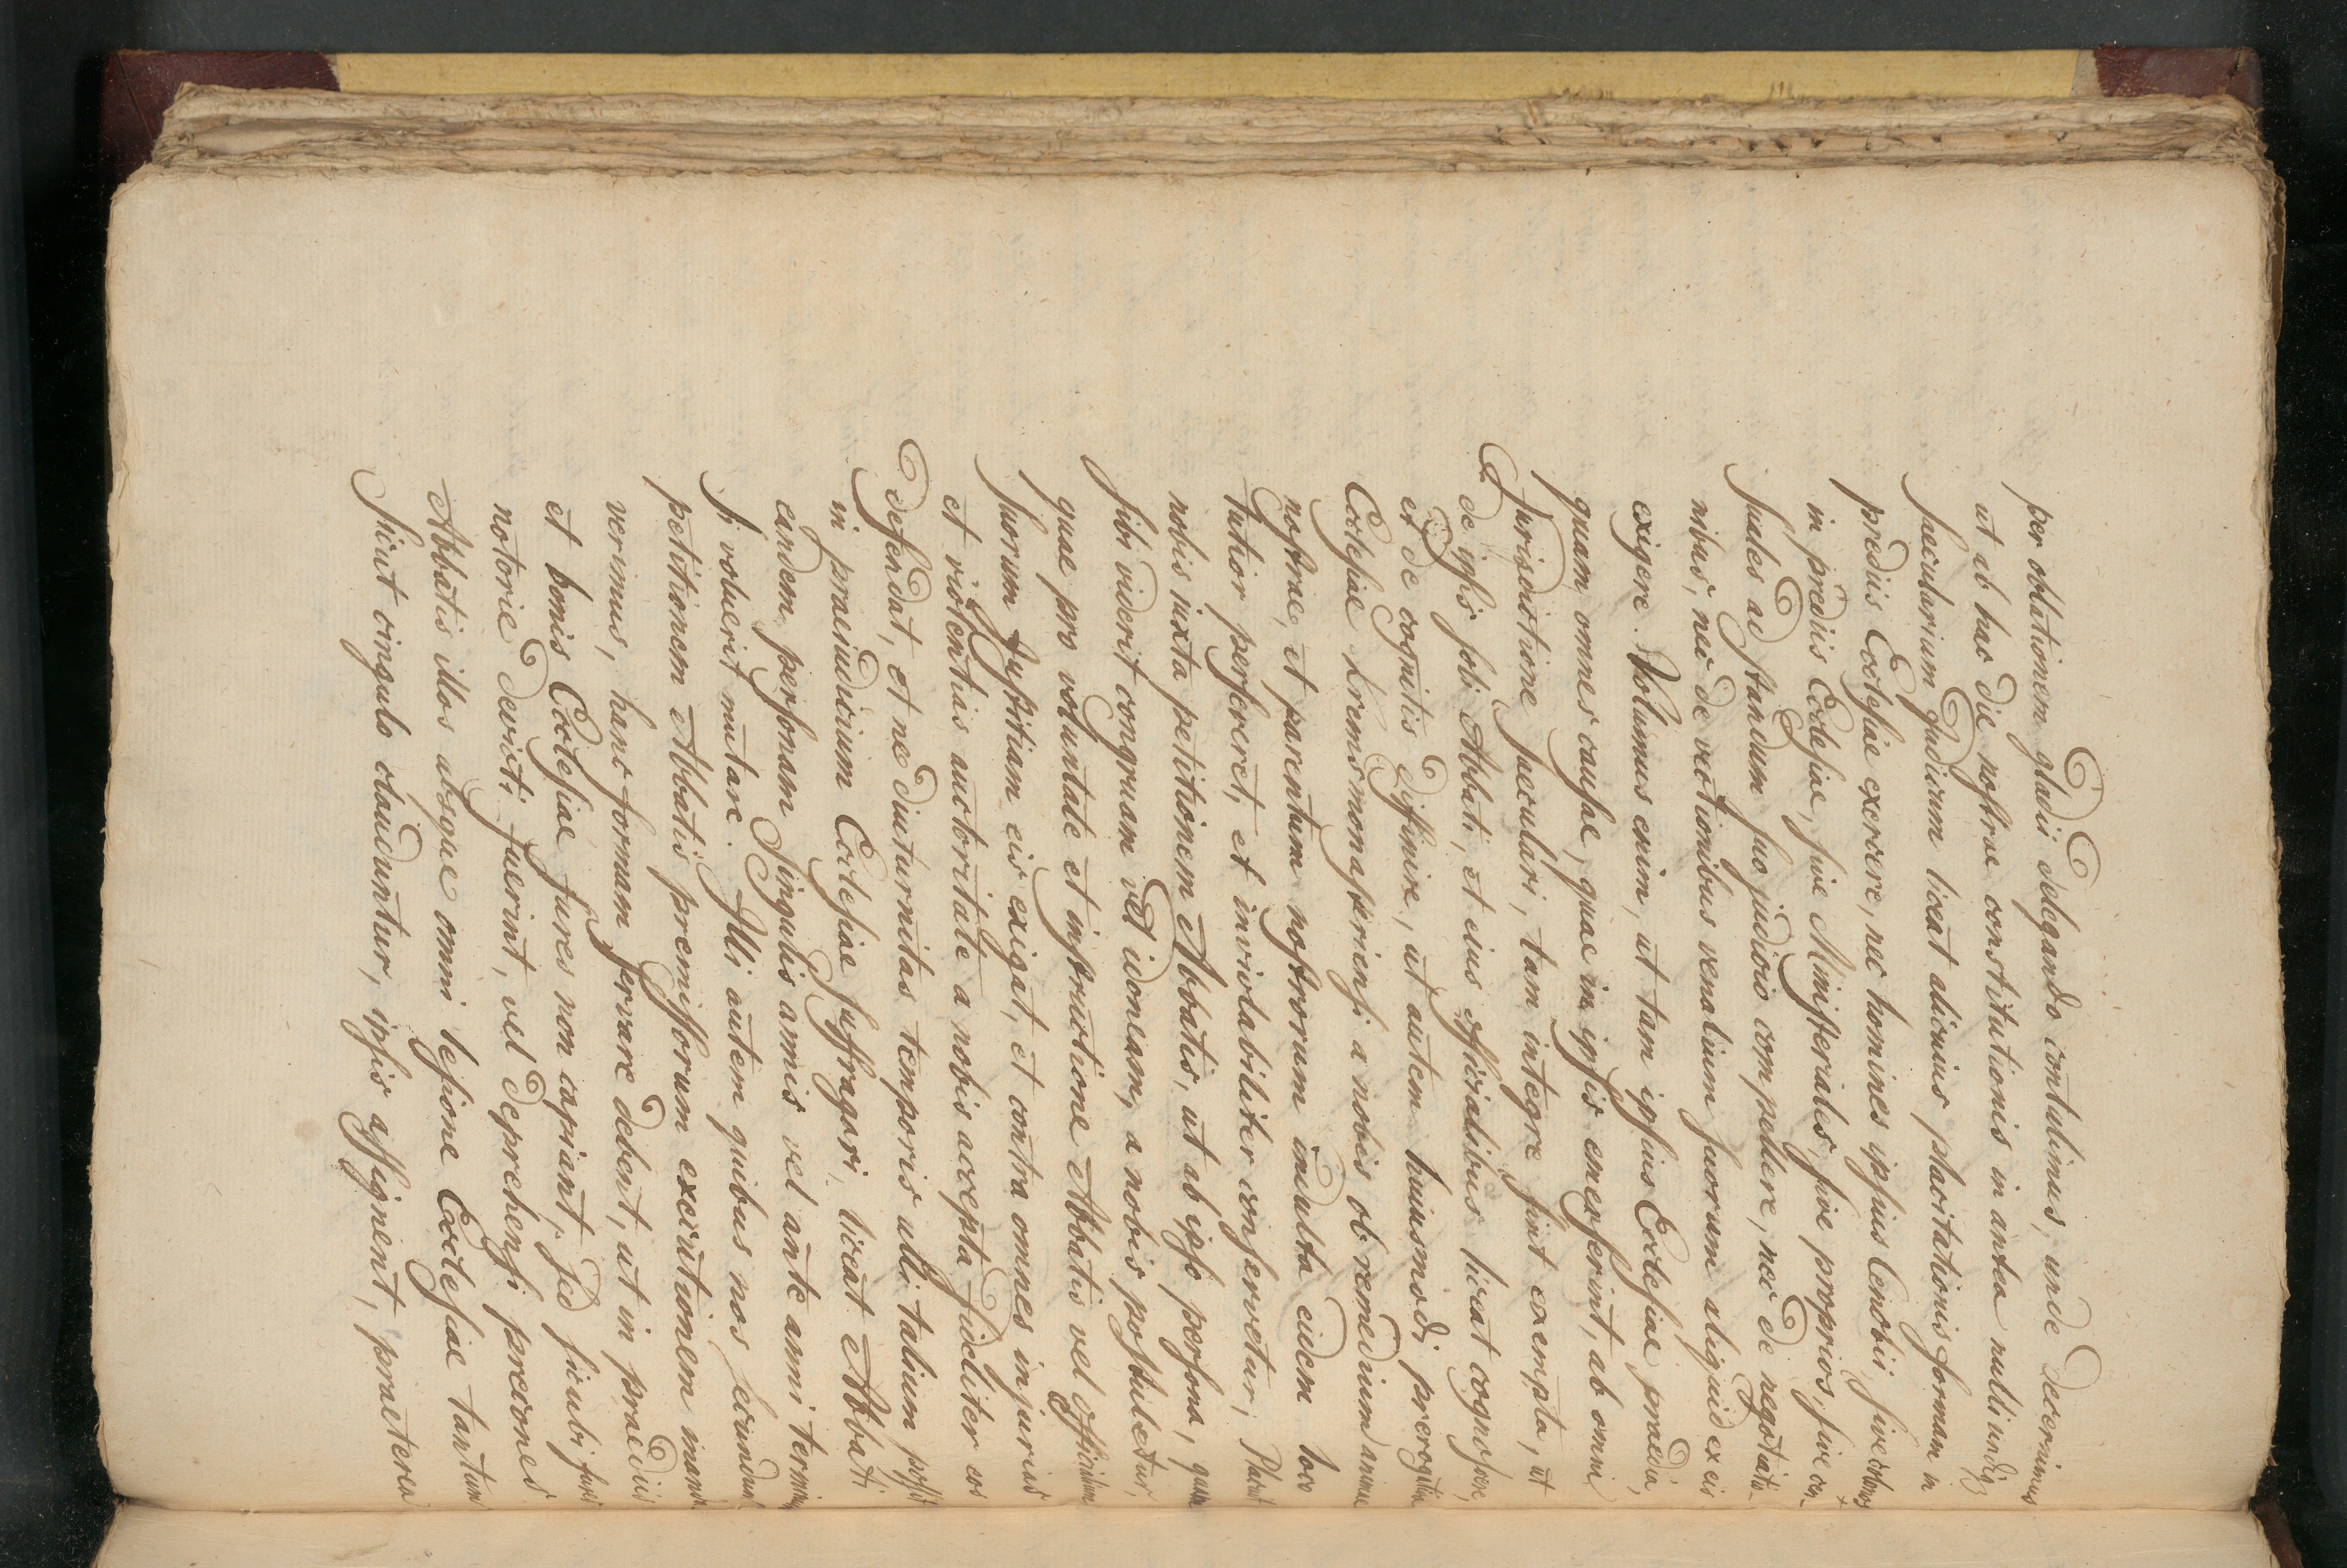 per oblationem gladii delegando contulimus, unde decernimus
ut ab hac die nostrae constitutionis in antea nulli undq
saecularium Judicum liceat alicuius placitationis formam in
prediis Ecclesiae exercere, nec homines ipsius Cenobii, sive colonos
in prediis Ecclesiae, sive Ministeriales, sive proprios, sive cen-
suales ad standum suo judicio compellere, nec de negotiatio-
nibus, nec de vectionibus venalium suorum aliquid ex eis
exigere. Volumus enim, ut tam ipsius Ecclesiae praedia,
quam omnes causae, quae in ipsis emerserint, ab omni
Jurisdictione saeculari, tam integre sint exempta, ut
de ipsis soli Abbati, et eius officialibus liceat cognoscere,
et de cognitis diffinire, ut autem huiusmodi prerogativa
Ecclesiae Kremsmonasteriensi a nobis ob remedium animae
nostrae, et parentum nostrorum indulta eidem loco
tutior perseveret, et inviolabiliter conservetur, Placuit
nobis iuxta petitionem Abbatis, ut ab ipso persona, quam
sibi viderit congruam vel idoneam, a nobis postuletur,
quae pro voluntate et instructione Abbatis vel officialium
suorum Justitiam eis exigat, et contra omnes injurias
et violentias auctoritate a nobis accepta fideliter eos
defendat, et ne diuturnitas temporis ulli talium possit
in praeiudicium Ecclesiae suffragari, liceat Abbati
eandem personam Singulis annis vel ante anni terminum
si voluerit mutare. Illi autem quibus nos secundum
petitionem Abbatis premissorum executionem manda-
verimus, hanc formam servare debent, ut in praediis
et bonis Ecclesiae fures non capiant, sed sicubi furti
notorie devicti fuerint, vel deprehensi precones
Abbatis illos absque omni lesione Ecclesiae tantum
sicut cingulo clauduntur, ipsis assignent, praeterea